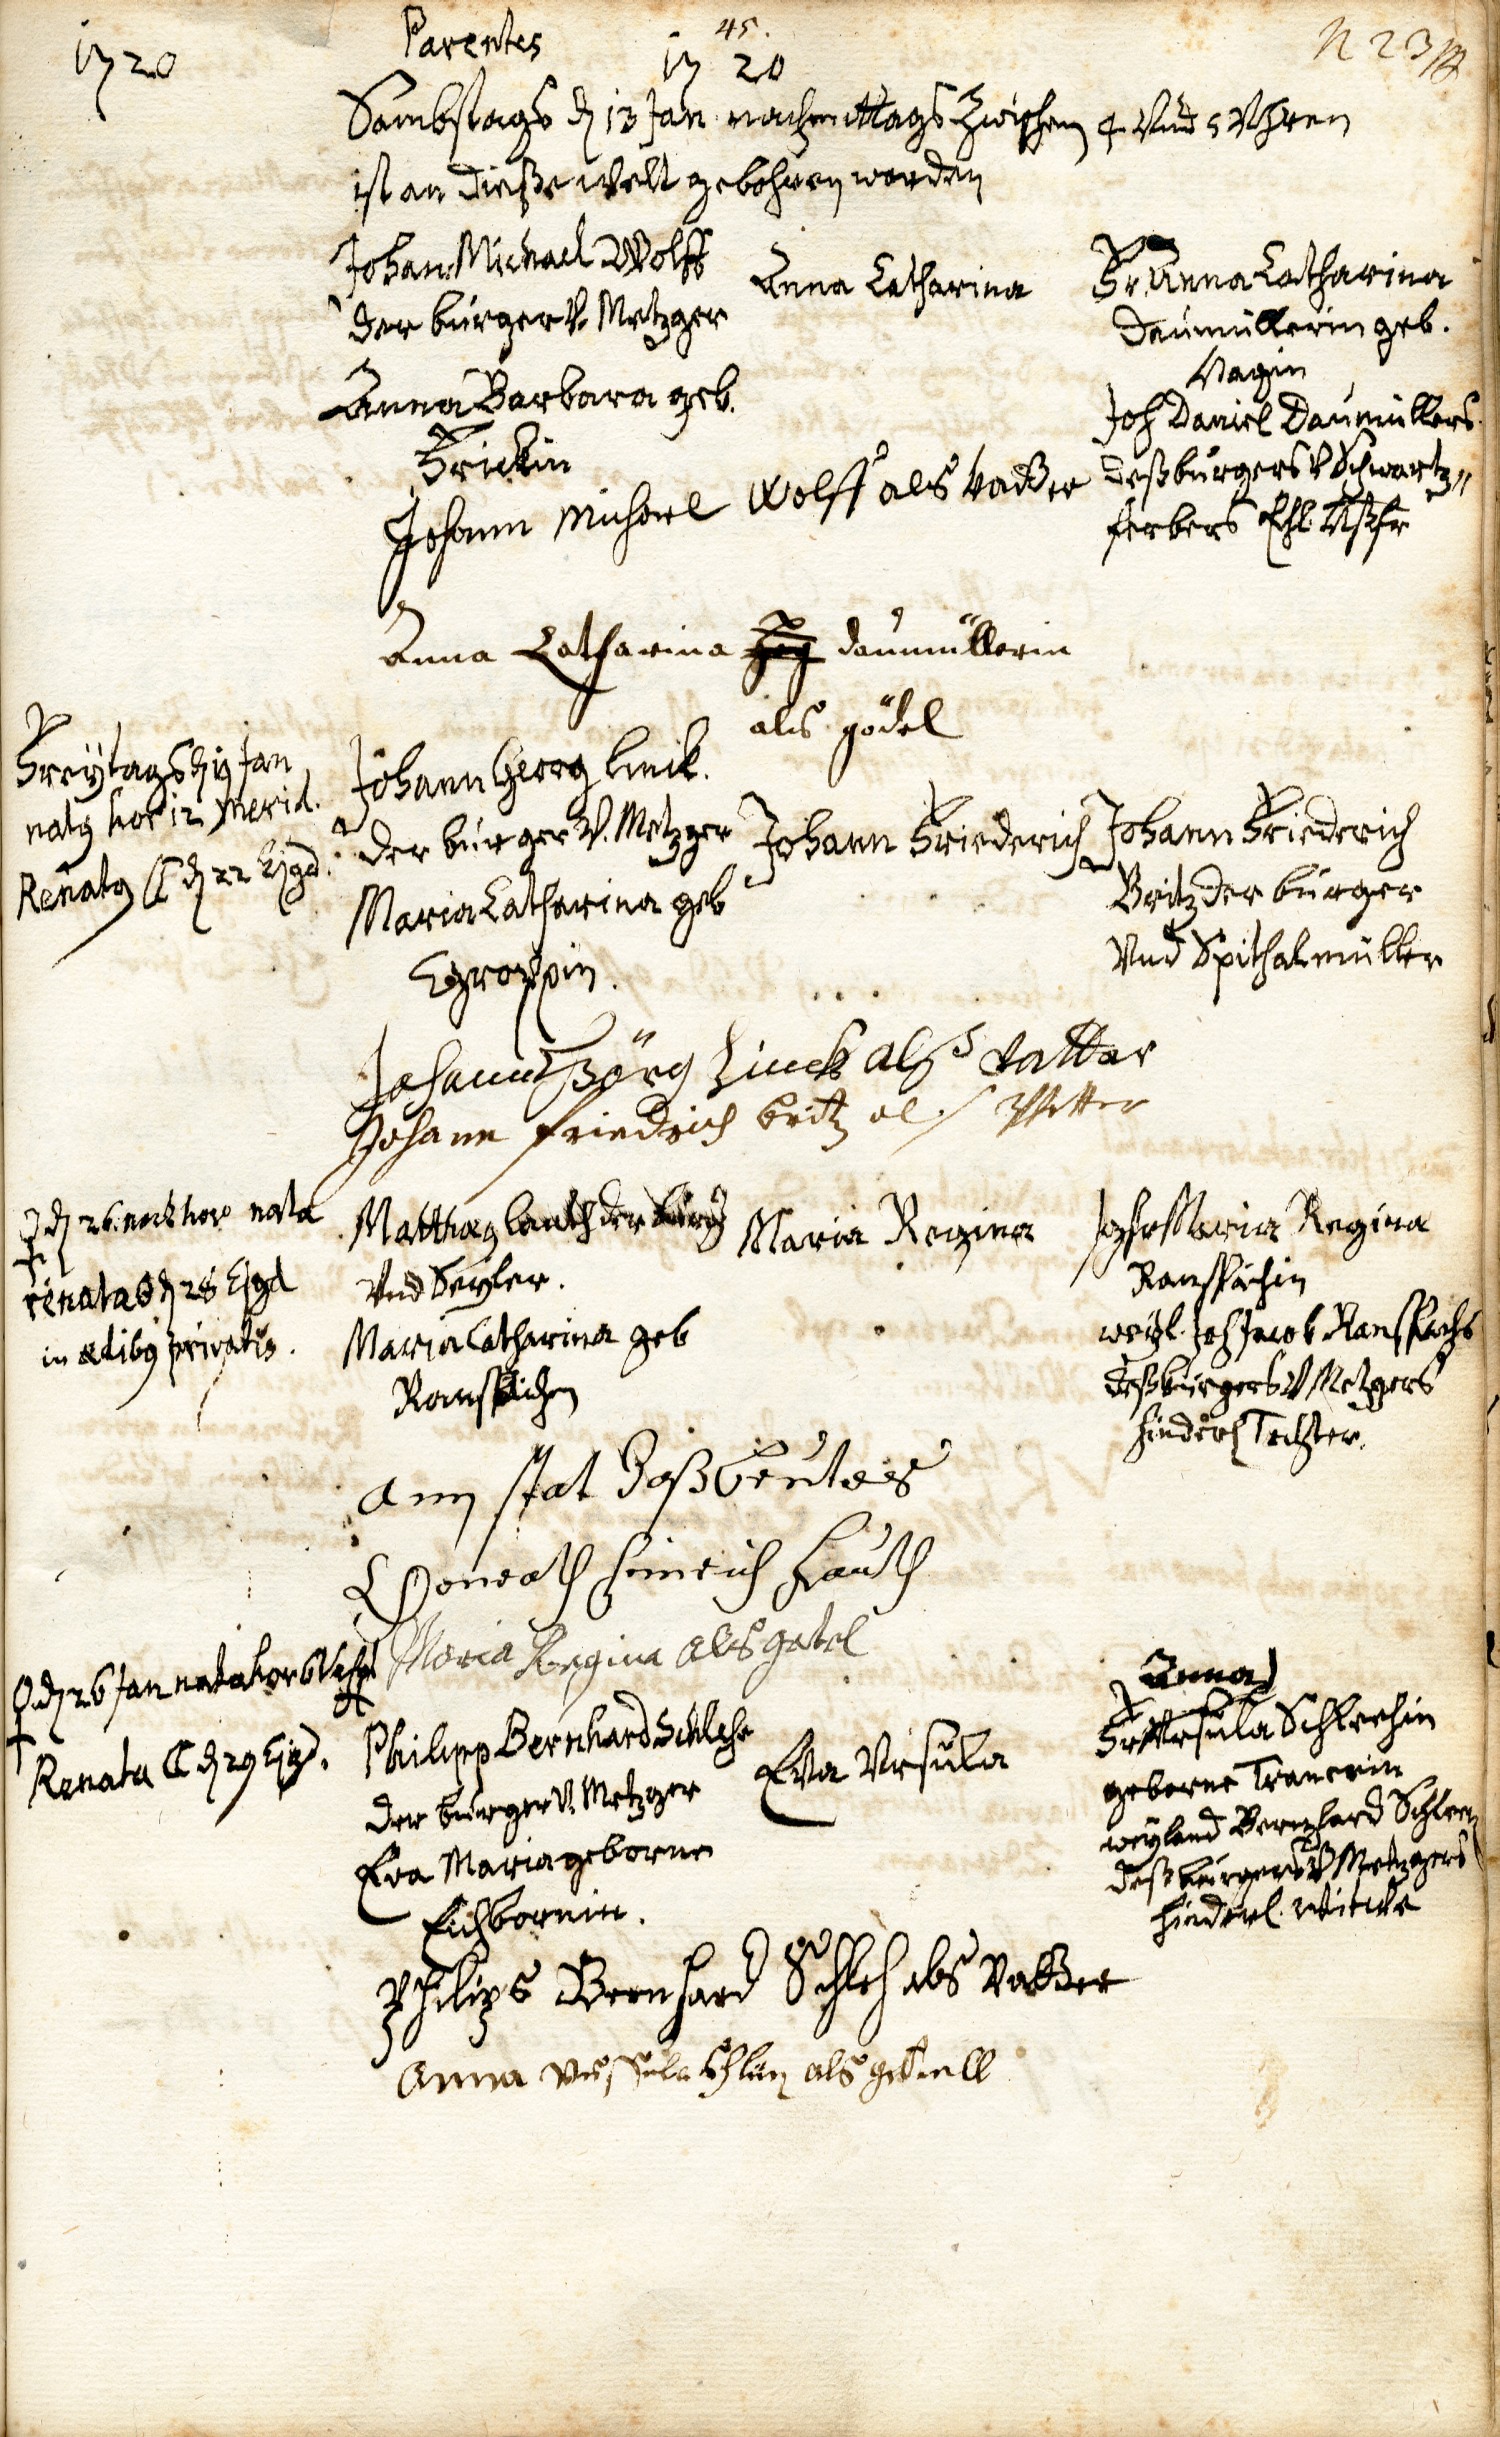 1720
Parentes
45.
1720
N 23
Sambstags d 13 Jan nachmittags Zwischen 4 Und 5 Uhren
ist an dieße welt gebohren worden
Johan Michael Wolff
der burger V. Metzger
Anna Barbara geb.
Frickin
Anna Catharina
Fr. Anna Catharina
Daumüllerin geb.
Nagin
Joh Daniel Daumüllers
deß burgers V Schwartz„
ferbers Ehl.
Johann Michael Wolff als vatter
Anna Catharina daumüllerin
als gödel
Freÿtags d 19 Jan
nat9 hor 12 merid.
Renat9 d 22 Ejgd.
Johann Georg Linck.
der burger V. Metzger
Maria Catharina geb
Groppin.
Johann Friederich
Johann Friederich
Britz der burger
Vnd Spithalmüller
Johann Görg Linck alß vatter
Johann friedrich britz alß Pfetter
d 26. hor nata
renata d 28 Ejgd
in ædib9 privatis.
Matthæ9 Lauth der burg
Vnd Seÿler.
Maria Catharina geb
Maria Regina
Jgfr Maria Regina
Ranspächin
weÿl. Joh Jacob Ranspachs
deß burgers V Metzgers
hinderl Tochter.
Ann stat deß
Conrath Heinrich Lauth
Maria Regina als gotel
d 26 Jan nata hor 6
Renata d 29 Ejgd.
Philipp Bernhard Schlehe
der burger V. Metzger
Eva Maria geborne
Eichbornin.
Eva Vrsula
Anna
Fr Vrsula Schleehin
geborne
weÿland Bernhard Schleen
deß burgers V Metzgers
hinderl. Wittwe
Philips Bernhard Schleh als vatter
Anna als